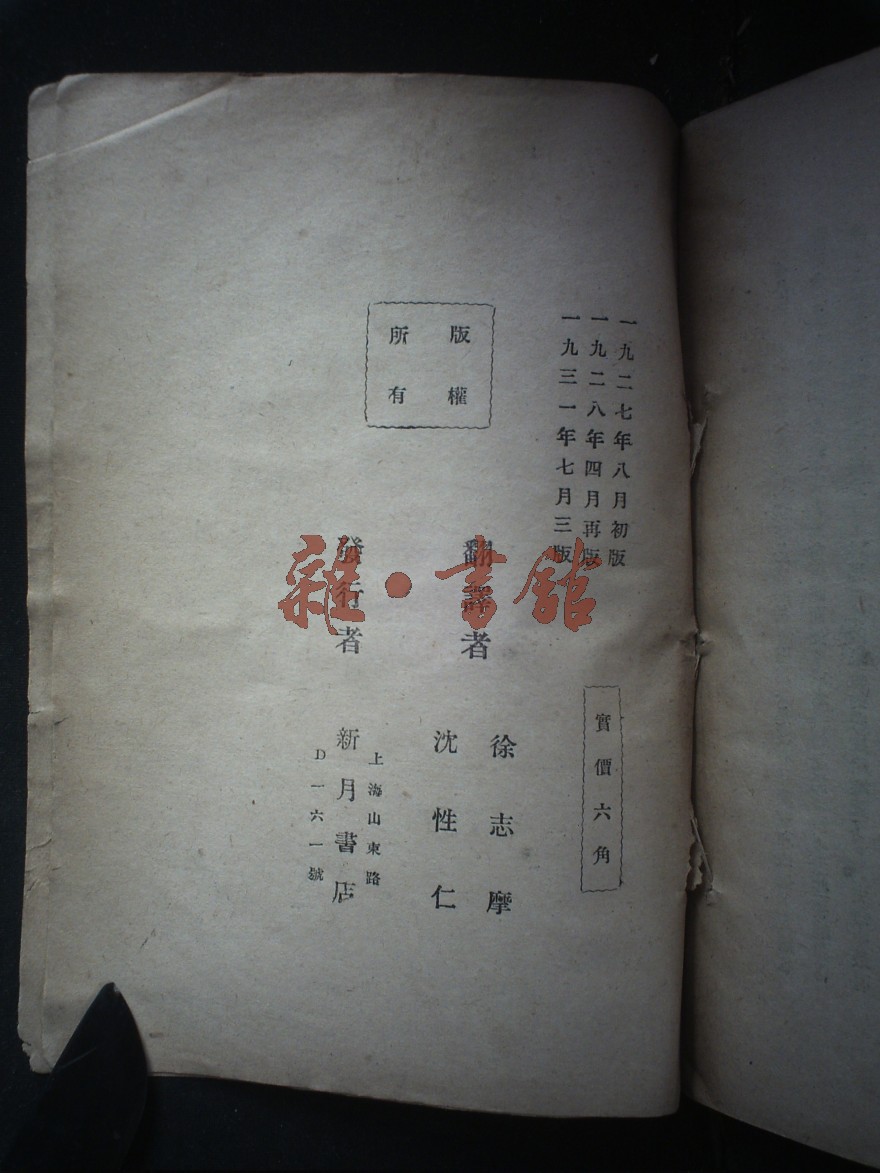 一九二七年八月初版
一九二八年四月再版
一九三一年七月三版
實價六角
版權
所有
翻譯者
徐志摩
沈性仁
發行者
上海山東路
新月書店
D一六一號
雜·書館